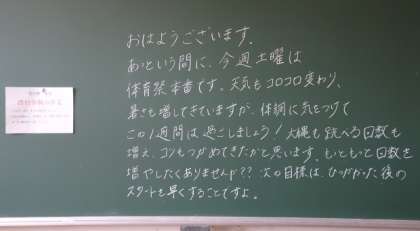 おはようございます。
あっという間に、今週土曜は
体育祭本番です。天気もコロコロ変わり、
暑さも増してきていますが、体調に気をつけて
この1週間は過ごしましょう!大縄も跳べる回数も
増え、コツもつかめてきたかと思います。もっともっと回数を
増やしたくありませんか??次の目標は、ひっかかった後の
スタートを早くすることですよ。